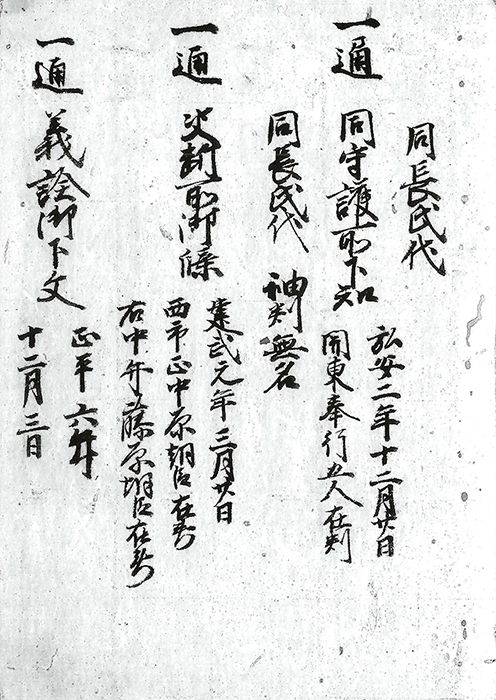 同長氏代
一通 同守護所下知 弘安二年十二月廿日
関東奉行五人在判
同長氏代 袖判無名
一通 決断所御牒 建武元年三月廿日
西市正中原朝臣在判
右中弁藤原朝臣在判
一通 義詮御下文 正平六年
十二月三日